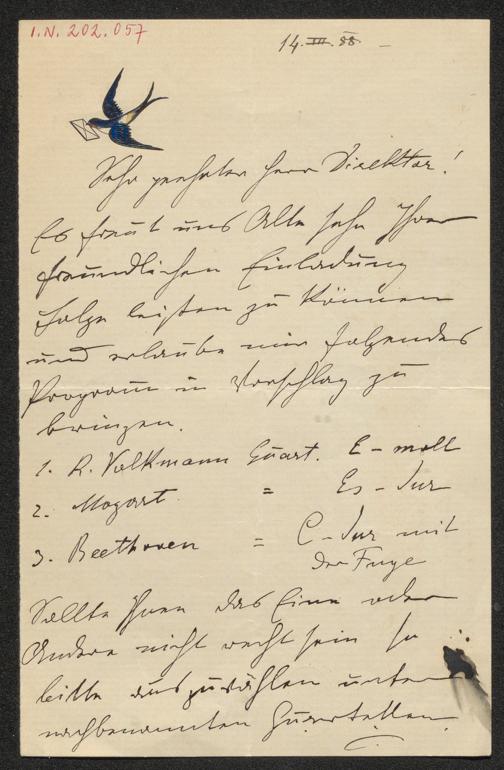 I.N. 202.057
14. III. 88. –
Sehr geehrter Herr Direktor!
Es freut uns Alle sehr Ihrer
freundlichen Einladung
Folge leisten zu können
und erlaube mir folgendes
Program in Vorschlag zu
bringen.
1. R. Volkmann Quart. E-moll
2. Mozart = Es-Dur
3. Beethoven = C-Dur mit
der Fuge
Sollte Ihnen das Eine oder
Andere nicht recht sein so
bitte auszuwählen unter
nachbenannten Quartetten